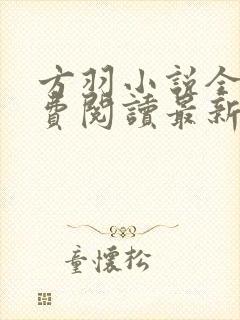 方羽小説全
費閱讀最新
童懷松